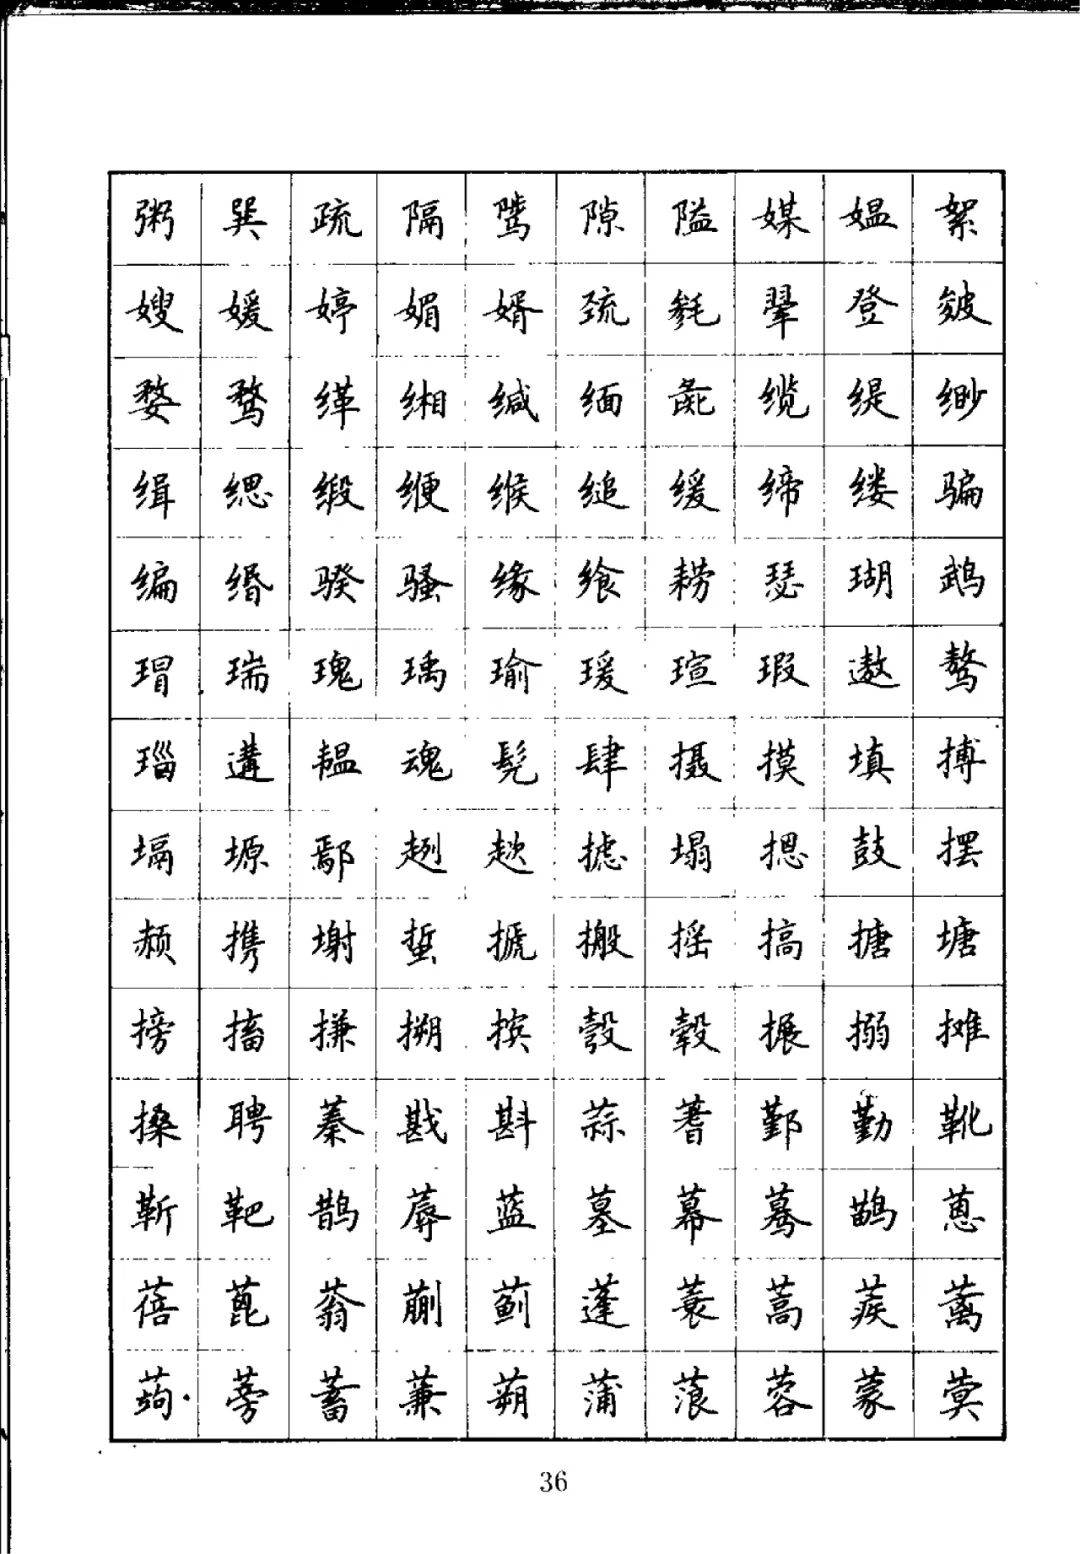 粥巽疏隔骘隙隘媒媪絮
嫂媛婷媚婿巯毵翚登皴
婺骛缂缃缄缅彘缆缇缈
缉缌缎缏缑缒缓缔缕骗
编缗骙骚缘飨耢瑟瑚鹉
瑁瑞瑰瑀瑜瑗瑄瑕遨骜
瑙遘韫魂髡肆摄摸填搏
塥塬鄢趔趑摅塌摁鼓摆
赪携塮蜇搋搬摇搞搪塘
搒搐搛搠摈彀毂搌搦摊
搡聘蓁戡斟蒜蓍鄞勤靴
靳靶鹊蓐蓝墓幕蓦鹋蒽
蓓蓖蓊蒯蓟蓬蓑蒿蒺蓠
蒟蒡蓄蒹蒴蒲蒗蓉蒙蓂
36